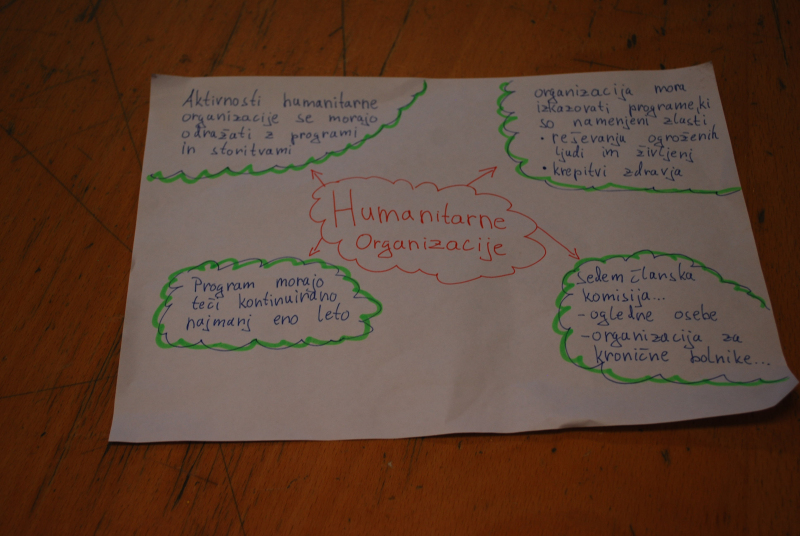 Aktivnosti humanitarne
organizacije se morajo
odražati z programi
in storitvami
organizacija mora
izkazovati programe, ki
so namenjeni zlasti
• reševanju ogroženih
ljudi im življenj
• krepitvi zdravja
Humanitarne
Organizacije
Program morajo
teči kontinuirano
najmanj eno leto
Sedem članska
komisija...
- ogledne osebe
- organizacija za
kronične bolnike...